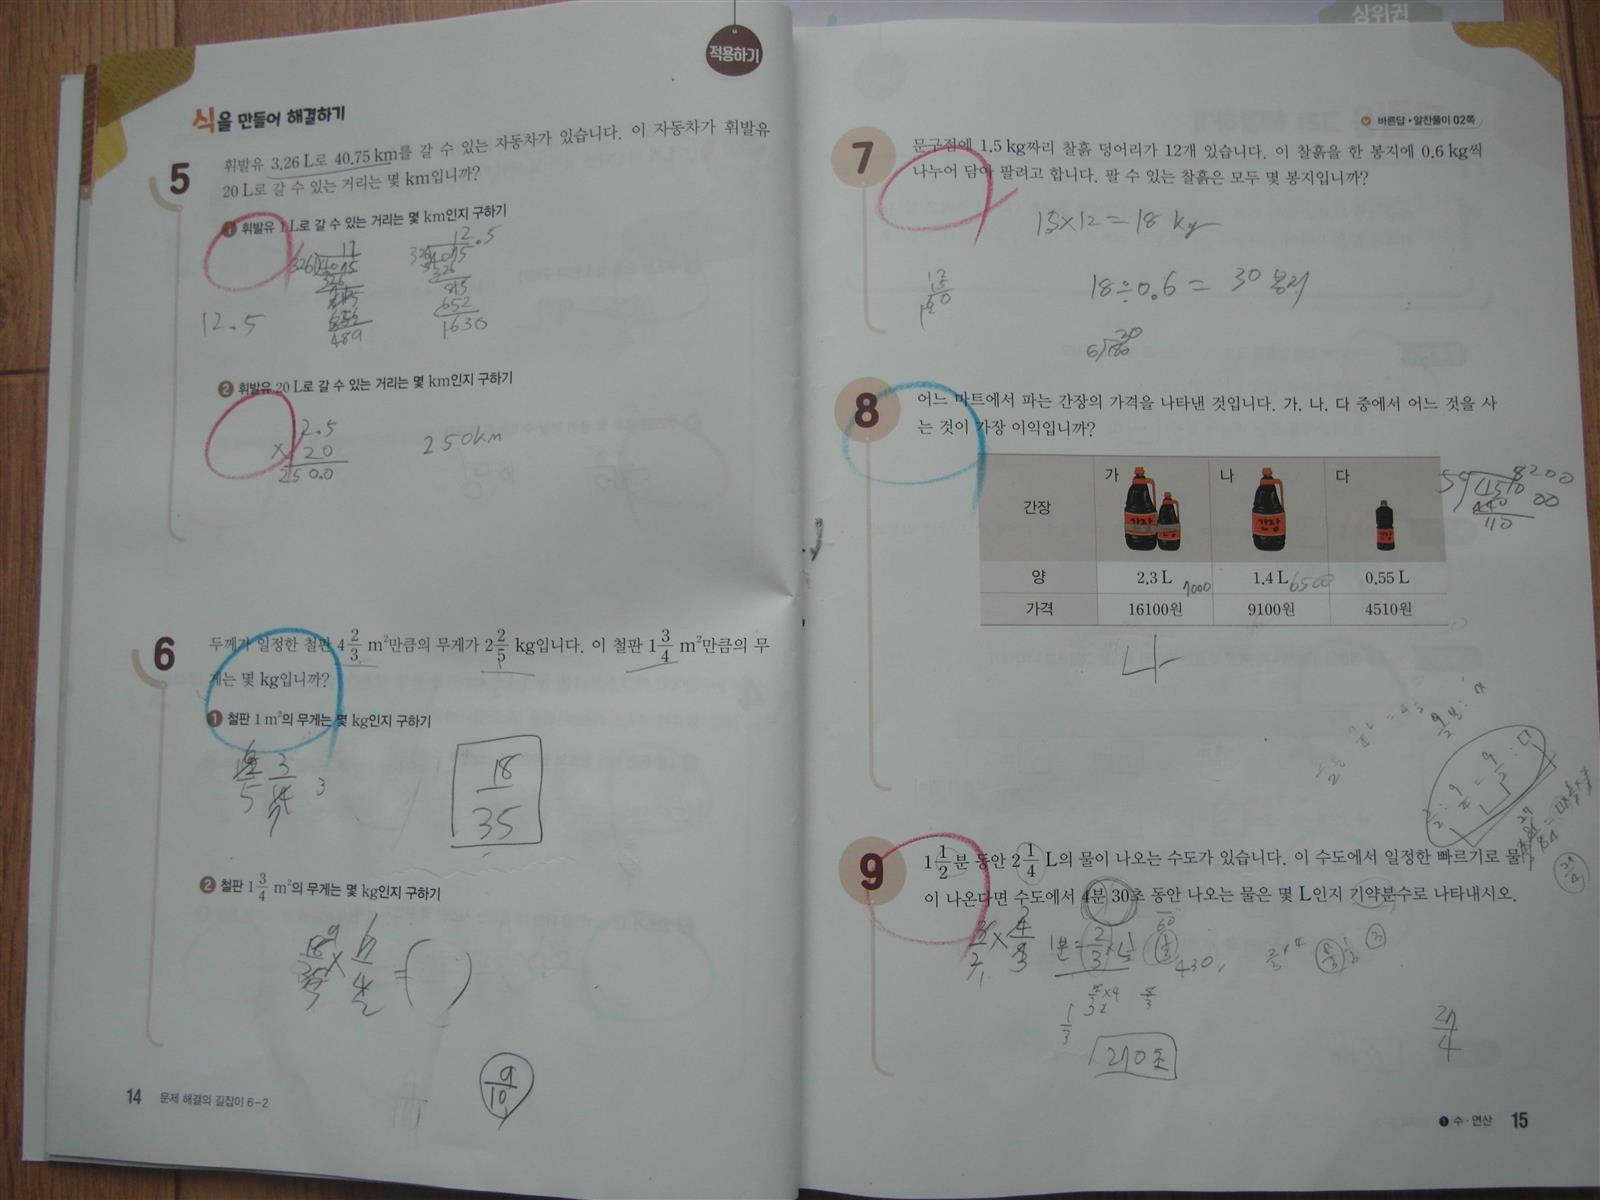 적용하기
식을 만들어 해결하기
5
휘발유 3.26 L로 40.75 km를 갈 수 있는 자동차가 있습니다. 이 자동차가 휘발유
20 L로 갈 수 있는 거리는 몇 km입니까?
1 휘발유 1 L로 갈 수 있는 거리는 몇 km인지 구하기
12.5
326 4075
326
815
652
1630
12.5
2 휘발유 20 L로 갈 수 있는 거리는 몇 km인지 구하기
2.5
× 20
250.0
250km
6
두께가 일정한 철판 4 2/3 m²만큼의 무게가 2 2/5 kg입니다. 이 철판 1 3/4 m²만큼의 무
게는 몇 kg입니까?
1 철판 1 m²의 무게는 몇 kg인지 구하기
18/35
2 철판 1 3/4 m²의 무게는 몇 kg인지 구하기
9/10
14 문제 해결의 길잡이 6-2
상위권
바른답·알찬풀이 02쪽
7
문구점에 1.5 kg짜리 찰흙 덩어리가 12개 있습니다. 이 찰흙을 한 봉지에 0.6 kg씩
나누어 담아 팔려고 합니다. 팔 수 있는 찰흙은 모두 몇 봉지입니까?
15×12=18 kg
18÷0.6= 30 봉지
8
어느 마트에서 파는 간장의 가격을 나타낸 것입니다. 가, 나, 다 중에서 어느 것을 사
는 것이 가장 이익입니까?
간장 가 나 다
양 2.3 L 7000 1.4 L 6500 0.55 L
가격 16100원 9100원 4510원
나
9
1 1/2분 동안 2 1/4 L의 물이 나오는 수도가 있습니다. 이 수도에서 일정한 빠르기로 물
이 나온다면 수도에서 4분 30초 동안 나오는 물은 몇 L인지 기약분수로 나타내시오.
270초
27/4
1 수·연산 15